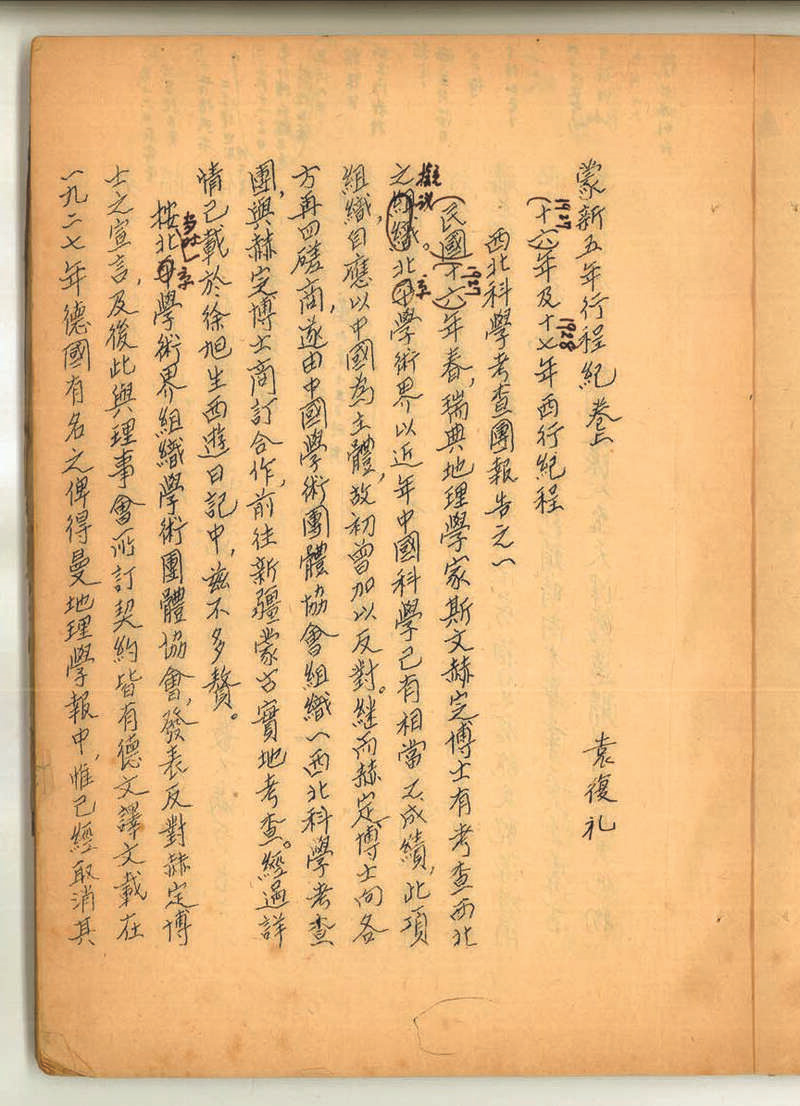 蒙新五年行程紀 卷上
袁復礼
(十六)年及十七年西行紀程
1927
1928
西北科學考查團報告之一
(民國十六)年春,瑞典地理學家斯文赫定博士有考查西北
1927
之組織。北平學術界以近年中國科學已有相當之成績,此項
擬議
京
組織,自應以中國為主體,故初曾加以反對。繼而赫定博士向各
方再四磋商,遂由中國學術團體協會組織一西北科學考查
團,與赫定博士商訂合作,前往新疆蒙古實地考查。經過詳
情已載於徐旭生西遊日記中,兹不多贅。
按北平學術界組織學術團體協會,發表反對赫定博
當时
京
士之宣言,及後此與理事會所訂契約皆有德文譯文載在
一九二七年德國有名之俾得曼地理學報中,惟已經取消其